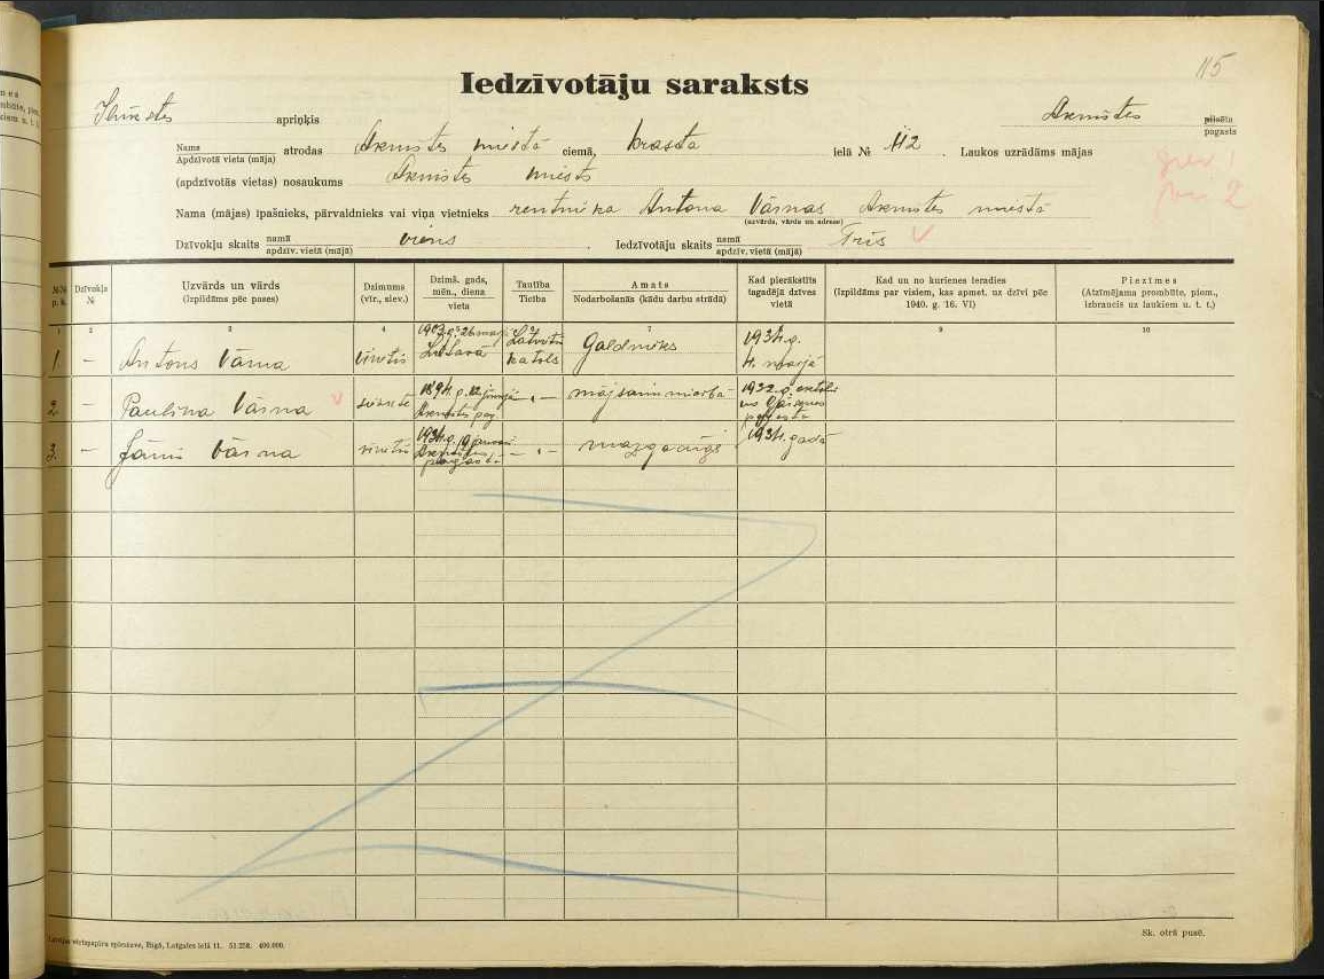 115
Iedzīvotāju saraksts
Ilūkstes apriņķis Aknīstes pilsēta pagasts
Name Apdzīvotā vieta (māja) atrodas Aknīstes miestā ciemā, Krasta ielā № 112. Laukos uzrādāms mājas
(apdzīvotās vietas) nosaukums Aknīstes miests
Nama (mājas) īpašnieks, pārvaldnieks vai viņa vietnieks rentnieka Antona Vārnas Aknīstes miestā
(uzvārds, vārds un adrese)
2
Dzīvokļu skaits namā apdzīv. vietā (mājā) viens. Iedzīvotāju skaits namā apdzīv. vietā (mājā) Trīs
№№ p. k.
Dzīvokļa №
Uzvārds un vārds (Izpildāms pēc pases)
Dzimums (vīr., siev.)
Dzimš. gads, mēn., diena vieta
Tautība Ticība
Amats Nodarbošanās (kādu darbu strādā)
Kad pierakstīts tagadējā dzīves vietā
Kad un no kurienes ieradies (Izpildāms par visiem, kas apmet. uz dzīvi pēc 1940. g. 16. VI)
Piezīmes (Atzīmējama prombūte, piem., izbraucis uz laukiem u. t. t.)
1 2 3 4 5 6 7 8 9 10
1. – Antons Vārna vīrietis 1903.g. 26. maijā Lietavā Latvietis katols Galdnieks 1934.g. 4. maijā
2. – Paulīna Vārna sieviete 1894.g. 12. jūnijā Aknīstes pag. – „ – mājsaimniecībā 1932.g. oktobrī no pagasta
3. – Jānis Vārna vīrietis 1934.g. 19. janvarī Aknīstes pagastā – „ – mazgadīgs 1934. gadā
Latvijas vērtspapīru spiestuve, Rīgā, Latgales ielā 11. 51.258. 400.000.
Sk. otrā pusē.